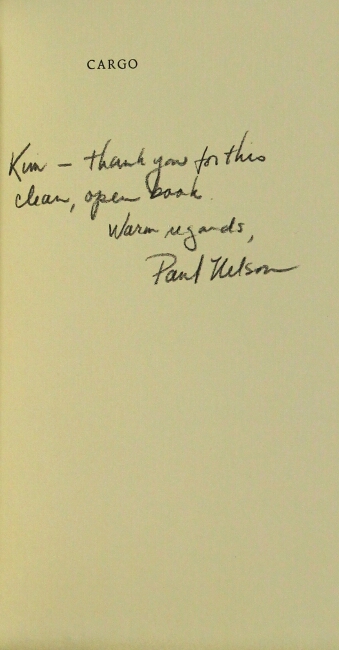 CARGO
Kim – thank you for this
clean, open book.
Warm regards,
Paul Nelson